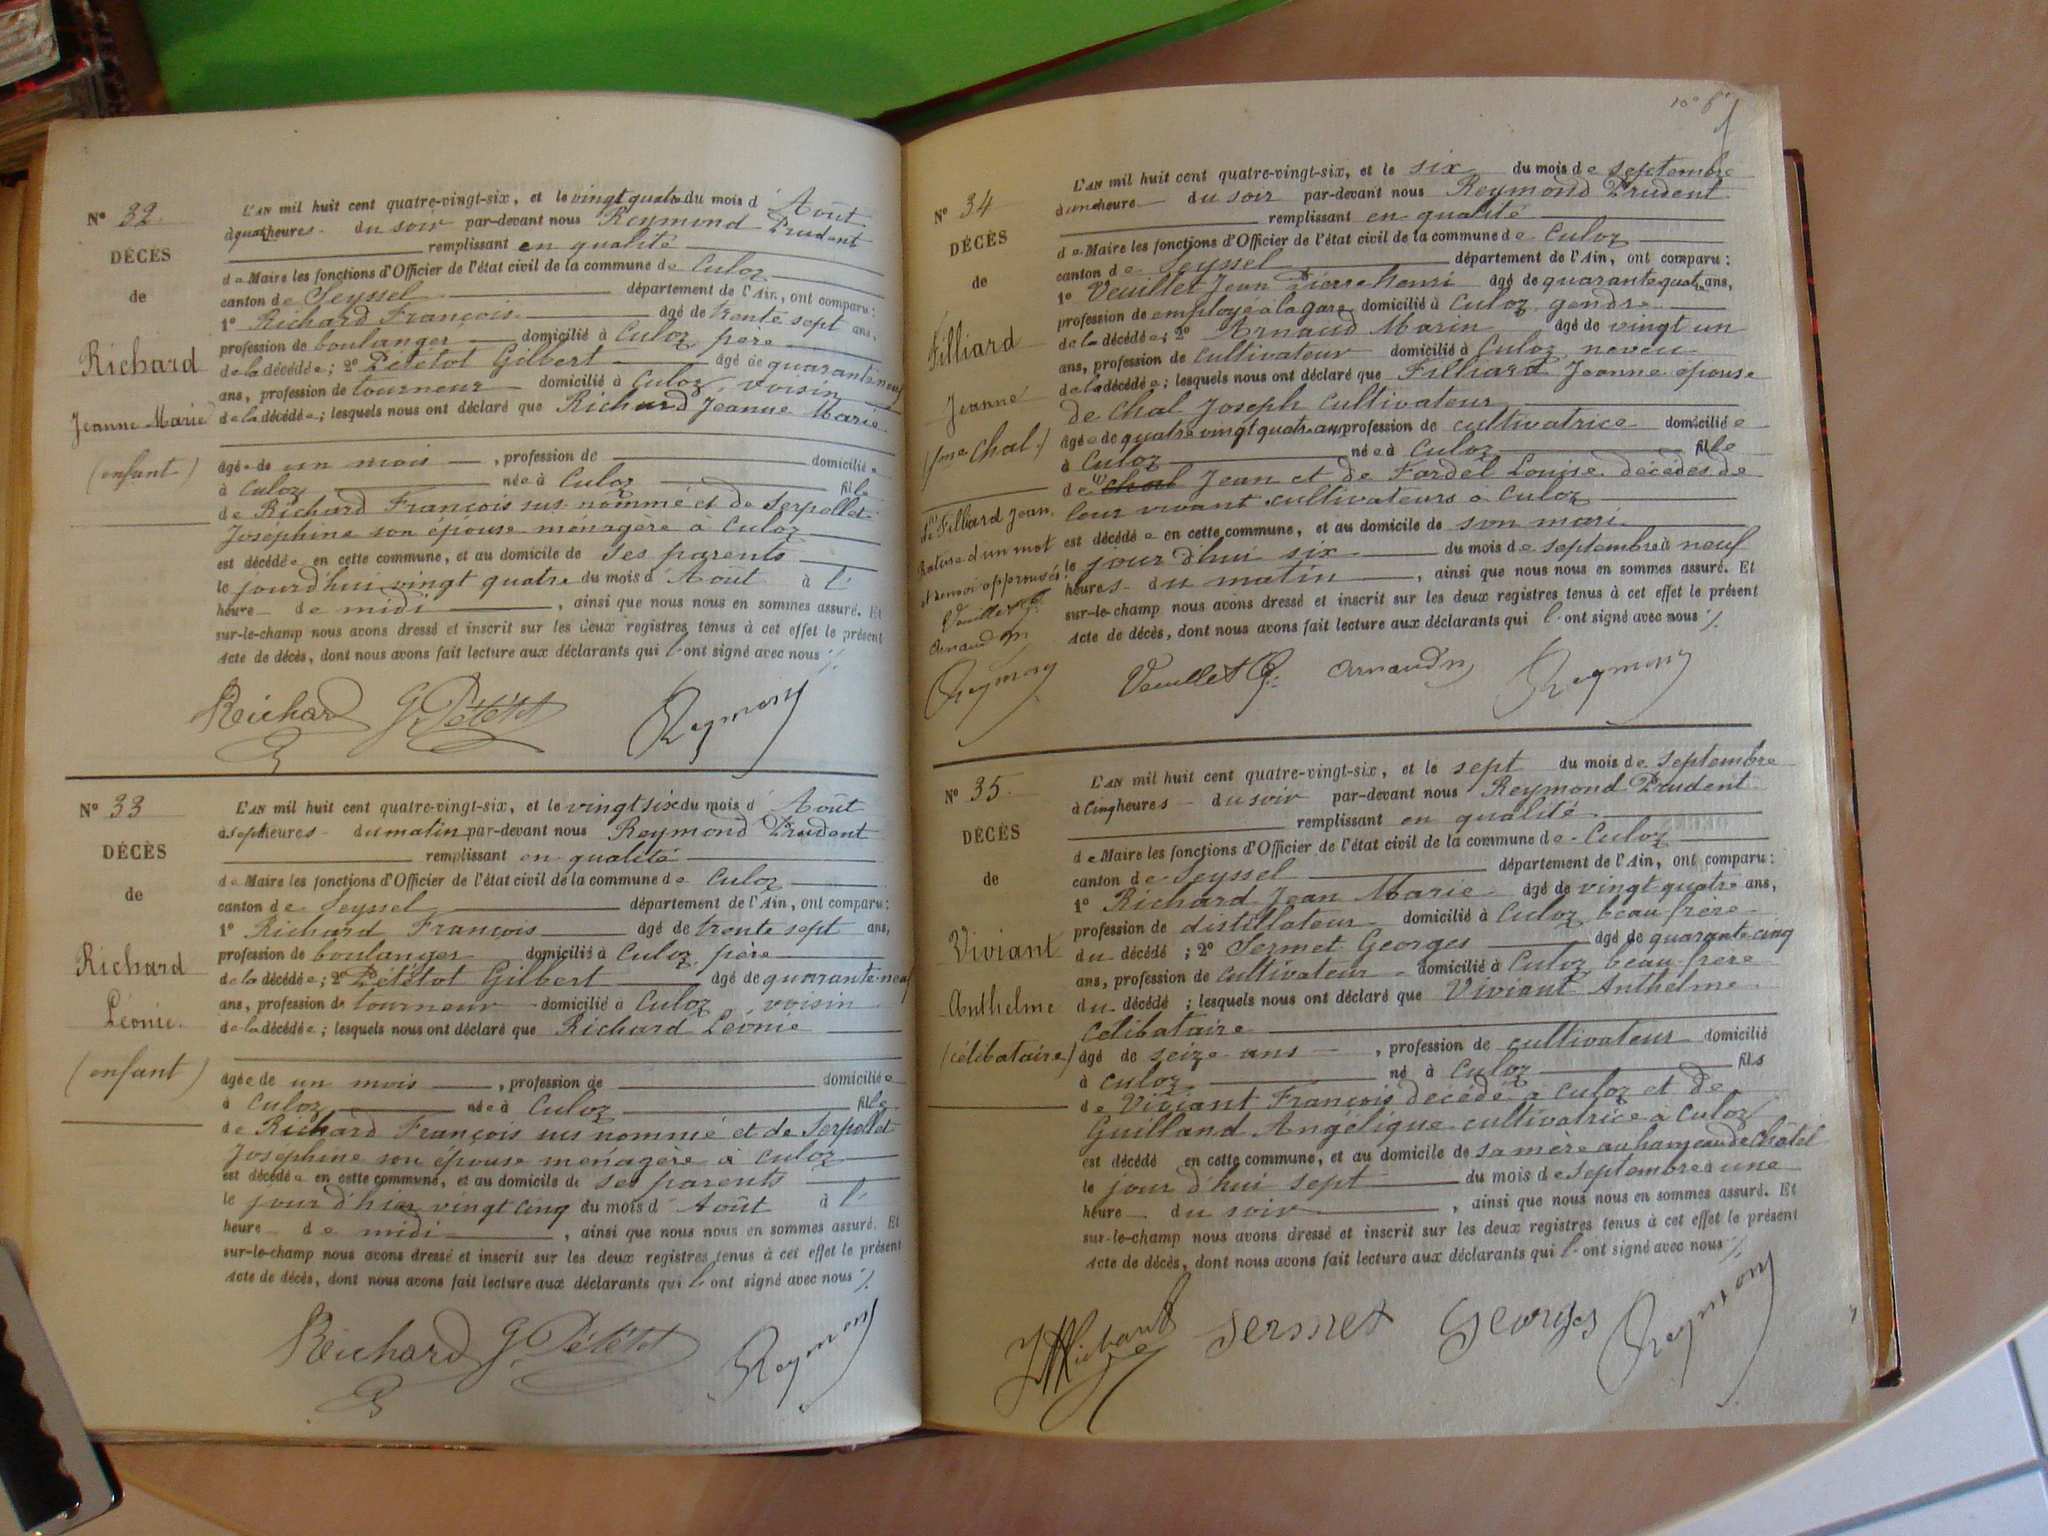 N° 32.
DÉCÈS
de
Richard
Jeanne Marie
(enfant)
L'AN mil huit cent quatre-vingt-six, et le vingt quatre du mois d' Août
à quatre heures du soir par-devant nous Reymond Prudent
remplissant en qualité
de Maire les fonctions d'Officier de l'état civil de la commune de Culoz
canton de Seyssel département de l'Ain, ont comparu :
1° Richard François âgé de trente sept ans,
profession de boulanger domicilié à Culoz père
de la décédée ; 2° Pététot Gilbert âgé de quarante neuf
ans, profession de tourneur domicilié à Culoz, voisin
de la décédée ; lesquels nous ont déclaré que Richard Jeanne Marie
âgée de un mois , profession de domiciliée
à Culoz née à Culoz fille
de Richard François sus nommé et de Serpollet
Joséphine son épouse ménagère à Culoz
est décédée en cette commune, et au domicile de ses parents
le jourd'hui vingt quatre du mois d' Août à l'
heure de midi , ainsi que nous nous en sommes assuré. Et
sur-le-champ nous avons dressé et inscrit sur les deux registres tenus à cet effet le présent
Acte de décès, dont nous avons fait lecture aux déclarants qui l'ont signé avec nous
Richard G. Pététot Reymond
N° 33
DÉCÈS
de
Richard
Léonie.
(enfant)
L'AN mil huit cent quatre-vingt-six, et le vingt six du mois d' Août
à sept heures du matin par-devant nous Reymond Prudent
remplissant en qualité
de Maire les fonctions d'Officier de l'état civil de la commune de Culoz
canton de Seyssel département de l'Ain, ont comparu :
1° Richard François âgé de trente sept ans,
profession de boulanger domicilié à Culoz père
de la décédée ; 2° Pététot Gilbert âgé de quarante-neuf
ans, profession de tourneur domicilié à Culoz voisin
de la décédée ; lesquels nous ont déclaré que Richard Léonie
âgée de un mois , profession de domiciliée
à Culoz née à Culoz fille
de Richard François sus nommé et de Serpollet
Joséphine son épouse ménagère à Culoz
est décédée en cette commune, et au domicile de ses parents
le jour d'hier vingt cinq du mois d' Août à l'
heure de midi , ainsi que nous nous en sommes assuré. Et
sur-le-champ nous avons dressé et inscrit sur les deux registres tenus à cet effet le présent
Acte de décès, dont nous avons fait lecture aux déclarants qui l'ont signé avec nous
Richard G. Pététot Reymond
N° 34
DÉCÈS
de
Filliard
Jeanne
(fme Chal.)
Filliard Jean.
Rature d'un mot
et renvoi approuvés.
Veuillet
Arnaud M
Reymond
L'AN mil huit cent quatre-vingt-six, et le six du mois de septembre
à une heure du soir par-devant nous Reymond Prudent
remplissant en qualité
de Maire les fonctions d'Officier de l'état civil de la commune de Culoz
canton de Seyssel département de l'Ain, ont comparu :
1° Veuillet Jean Pierre henri âgé de quarante quatre ans,
profession de employé à la gare domicilié à Culoz gendre
de la décédée ; 2° Arnaud Marin âgé de vingt un
ans, profession de cultivateur domicilié à Culoz neveu
de la décédée ; lesquels nous ont déclaré que Filliard Jeanne épouse
de Chal Joseph cultivateur
âgée de quatre vingt quatre ans, profession de cultivatrice domiciliée
à Culoz née à Culoz fille
de Chal Jean et de Fordel Louise décédés de
leur vivant cultivateurs à Culoz
est décédée en cette commune, et au domicile de son mari
le jour d'hui six du mois de septembre à neuf
heures du matin , ainsi que nous nous en sommes assuré. Et
sur-le-champ nous avons dressé et inscrit sur les deux registres tenus à cet effet le présent
Acte de décès, dont nous avons fait lecture aux déclarants qui l'ont signé avec nous
Veuillet Arnaud M Reymond
N° 35.
DÉCÈS
de
Viviant
Anthelme
(célibataire)
L'AN mil huit cent quatre-vingt-six, et le sept du mois de septembre
à Cinq heures du soir par-devant nous Reymond Prudent
remplissant en qualité
de Maire les fonctions d'Officier de l'état civil de la commune de Culoz
canton de Seyssel département de l'Ain, ont comparu :
1° Richard Jean Marie âgé de vingt quatre ans,
profession de distillateur domicilié à Culoz beau-frère
du décédé ; 2° Sermet Georges âgé de quarante cinq
ans, profession de cultivateur domicilié à Culoz beau-frère
du décédé ; lesquels nous ont déclaré que Viviant Anthelme
Célibataire
âgé de seize ans , profession de cultivateur domicilié
à Culoz né à Culoz fils
de Viviant François décédé à Culoz et de
Guilland Angélique cultivatrice à Culoz
est décédé en cette commune, et au domicile de sa mère au hameau de Châtel
le jour d'hui sept du mois de septembre à une
heure du soir , ainsi que nous nous en sommes assuré. Et
sur-le-champ nous avons dressé et inscrit sur les deux registres tenus à cet effet le présent
Acte de décès, dont nous avons fait lecture aux déclarants qui l'ont signé avec nous
JM Richard Sermet Georges Reymond